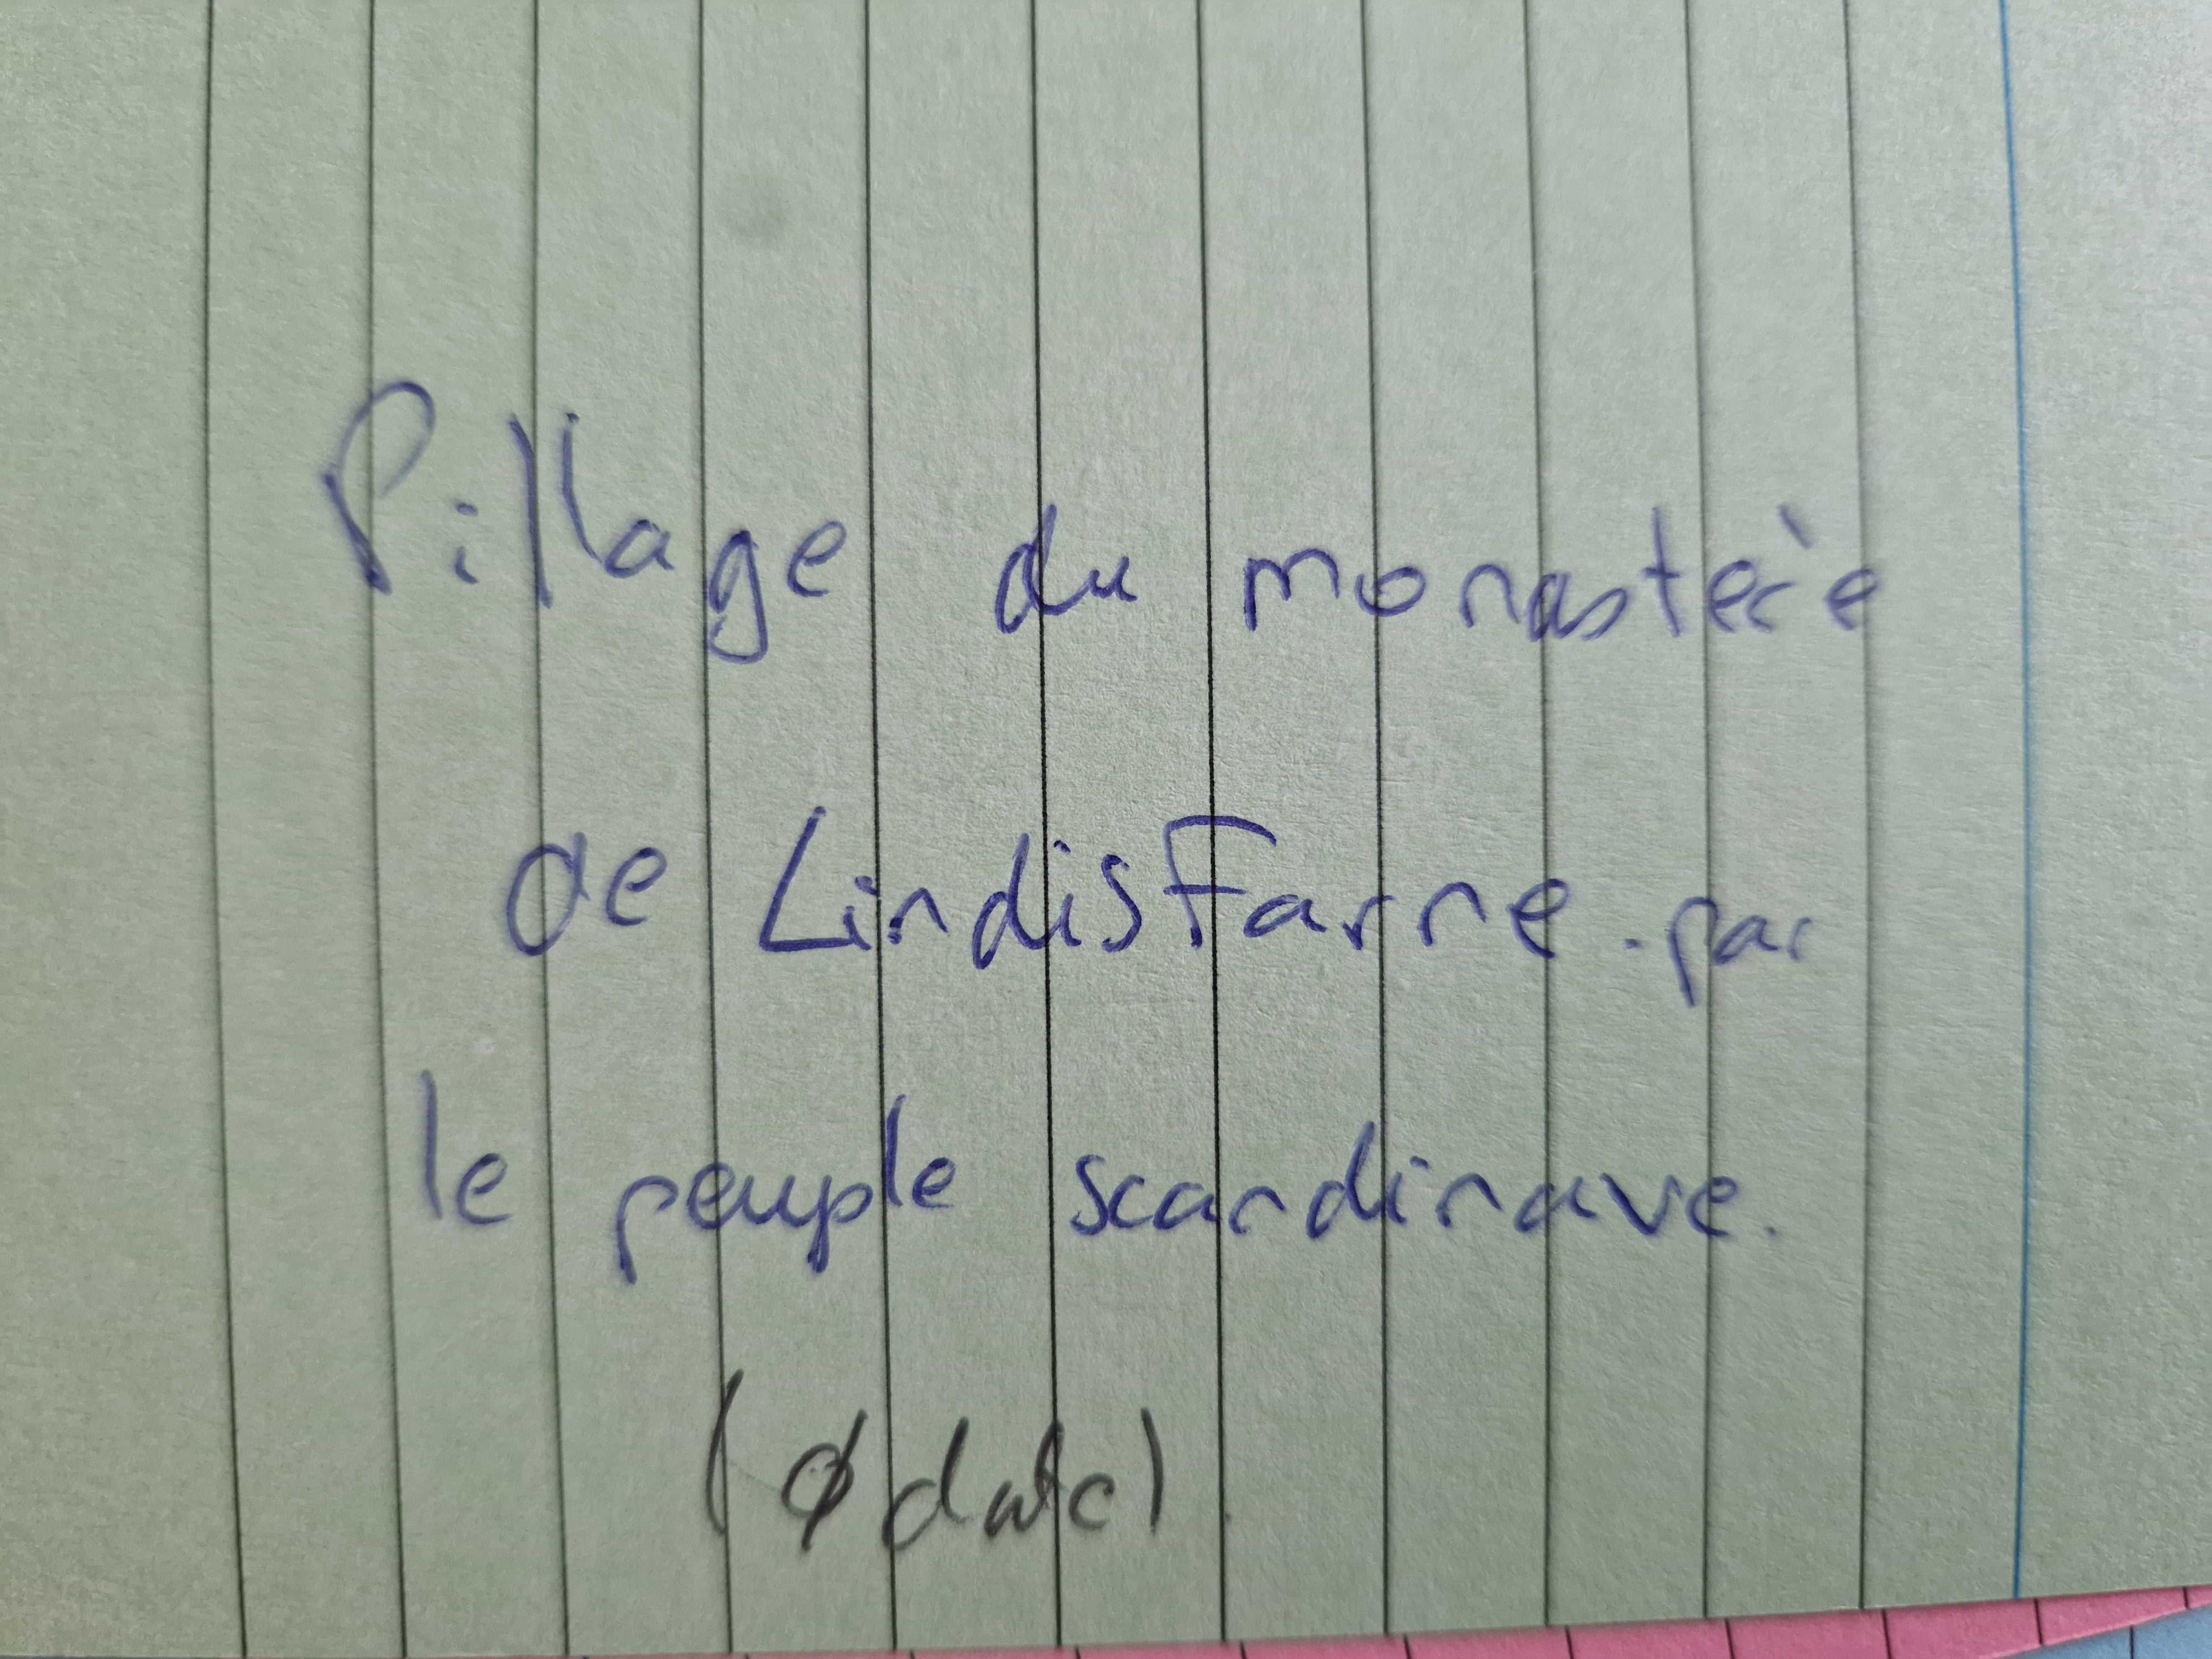 Pillage du monastère
de Lindisfarne. par
le peuple scandinave.
(Ø date)